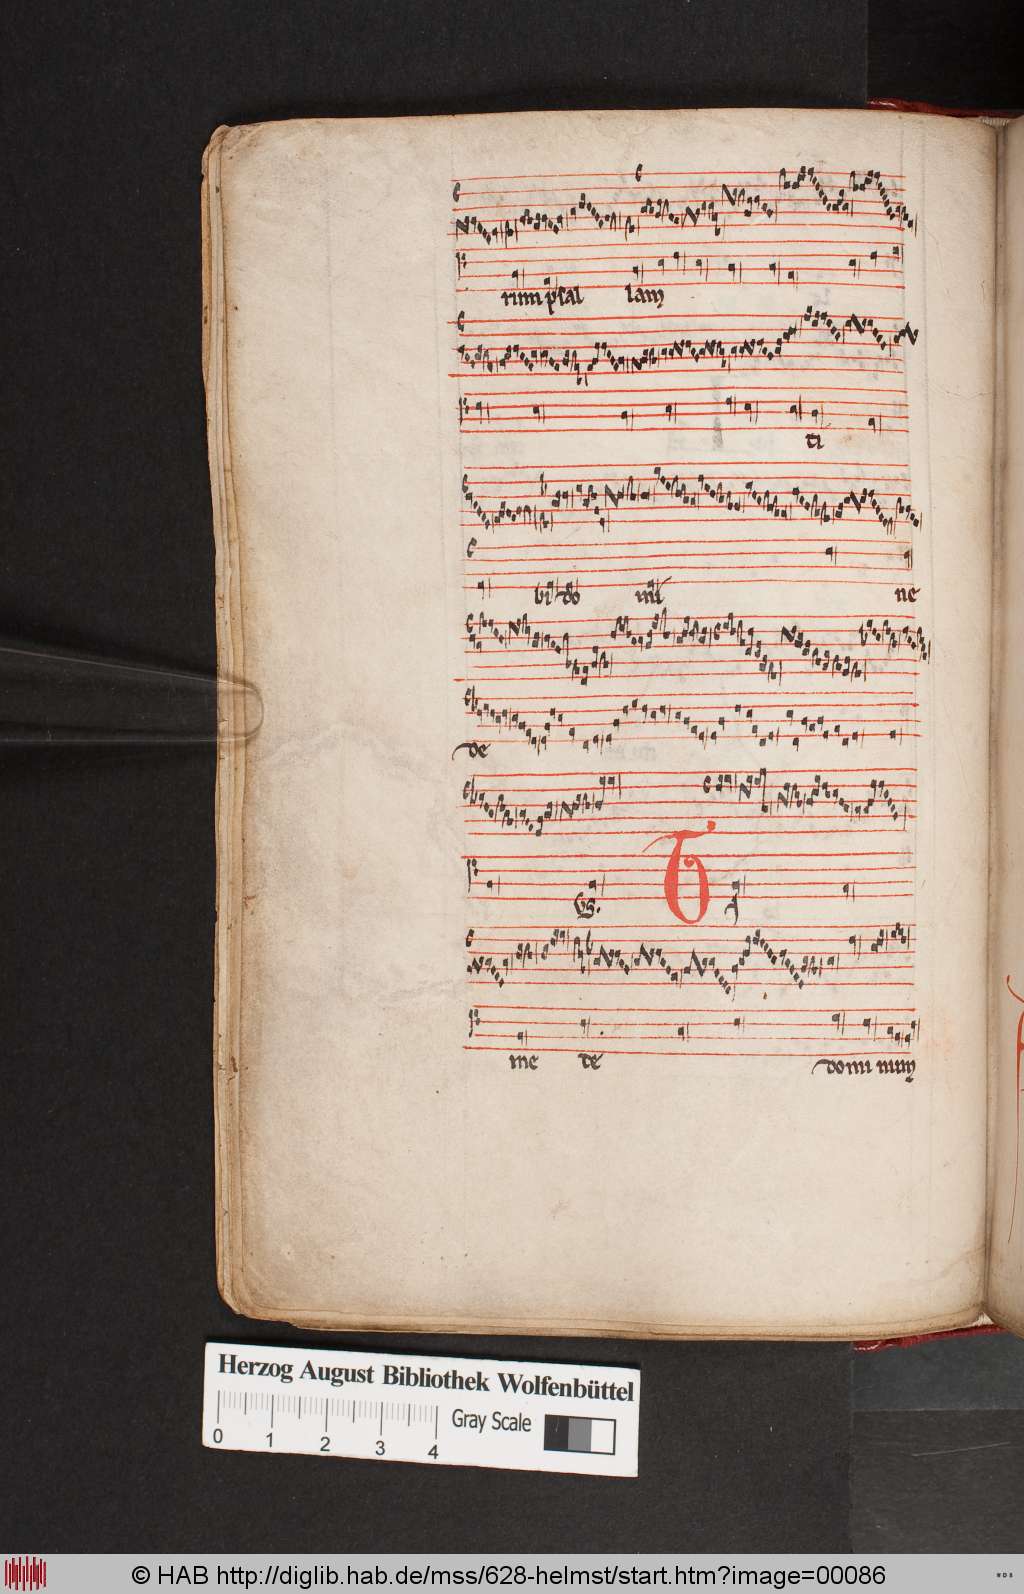 rum psal lam
ti
bi do mi ne
de
us.
T I
me te domi num
Herzog August Bibliothek Wolfenbüttel
0 1 2 3 4 Gray Scale
© HAB http://diglib.hab.de/mss/628-helmst/start.htm?image=00086